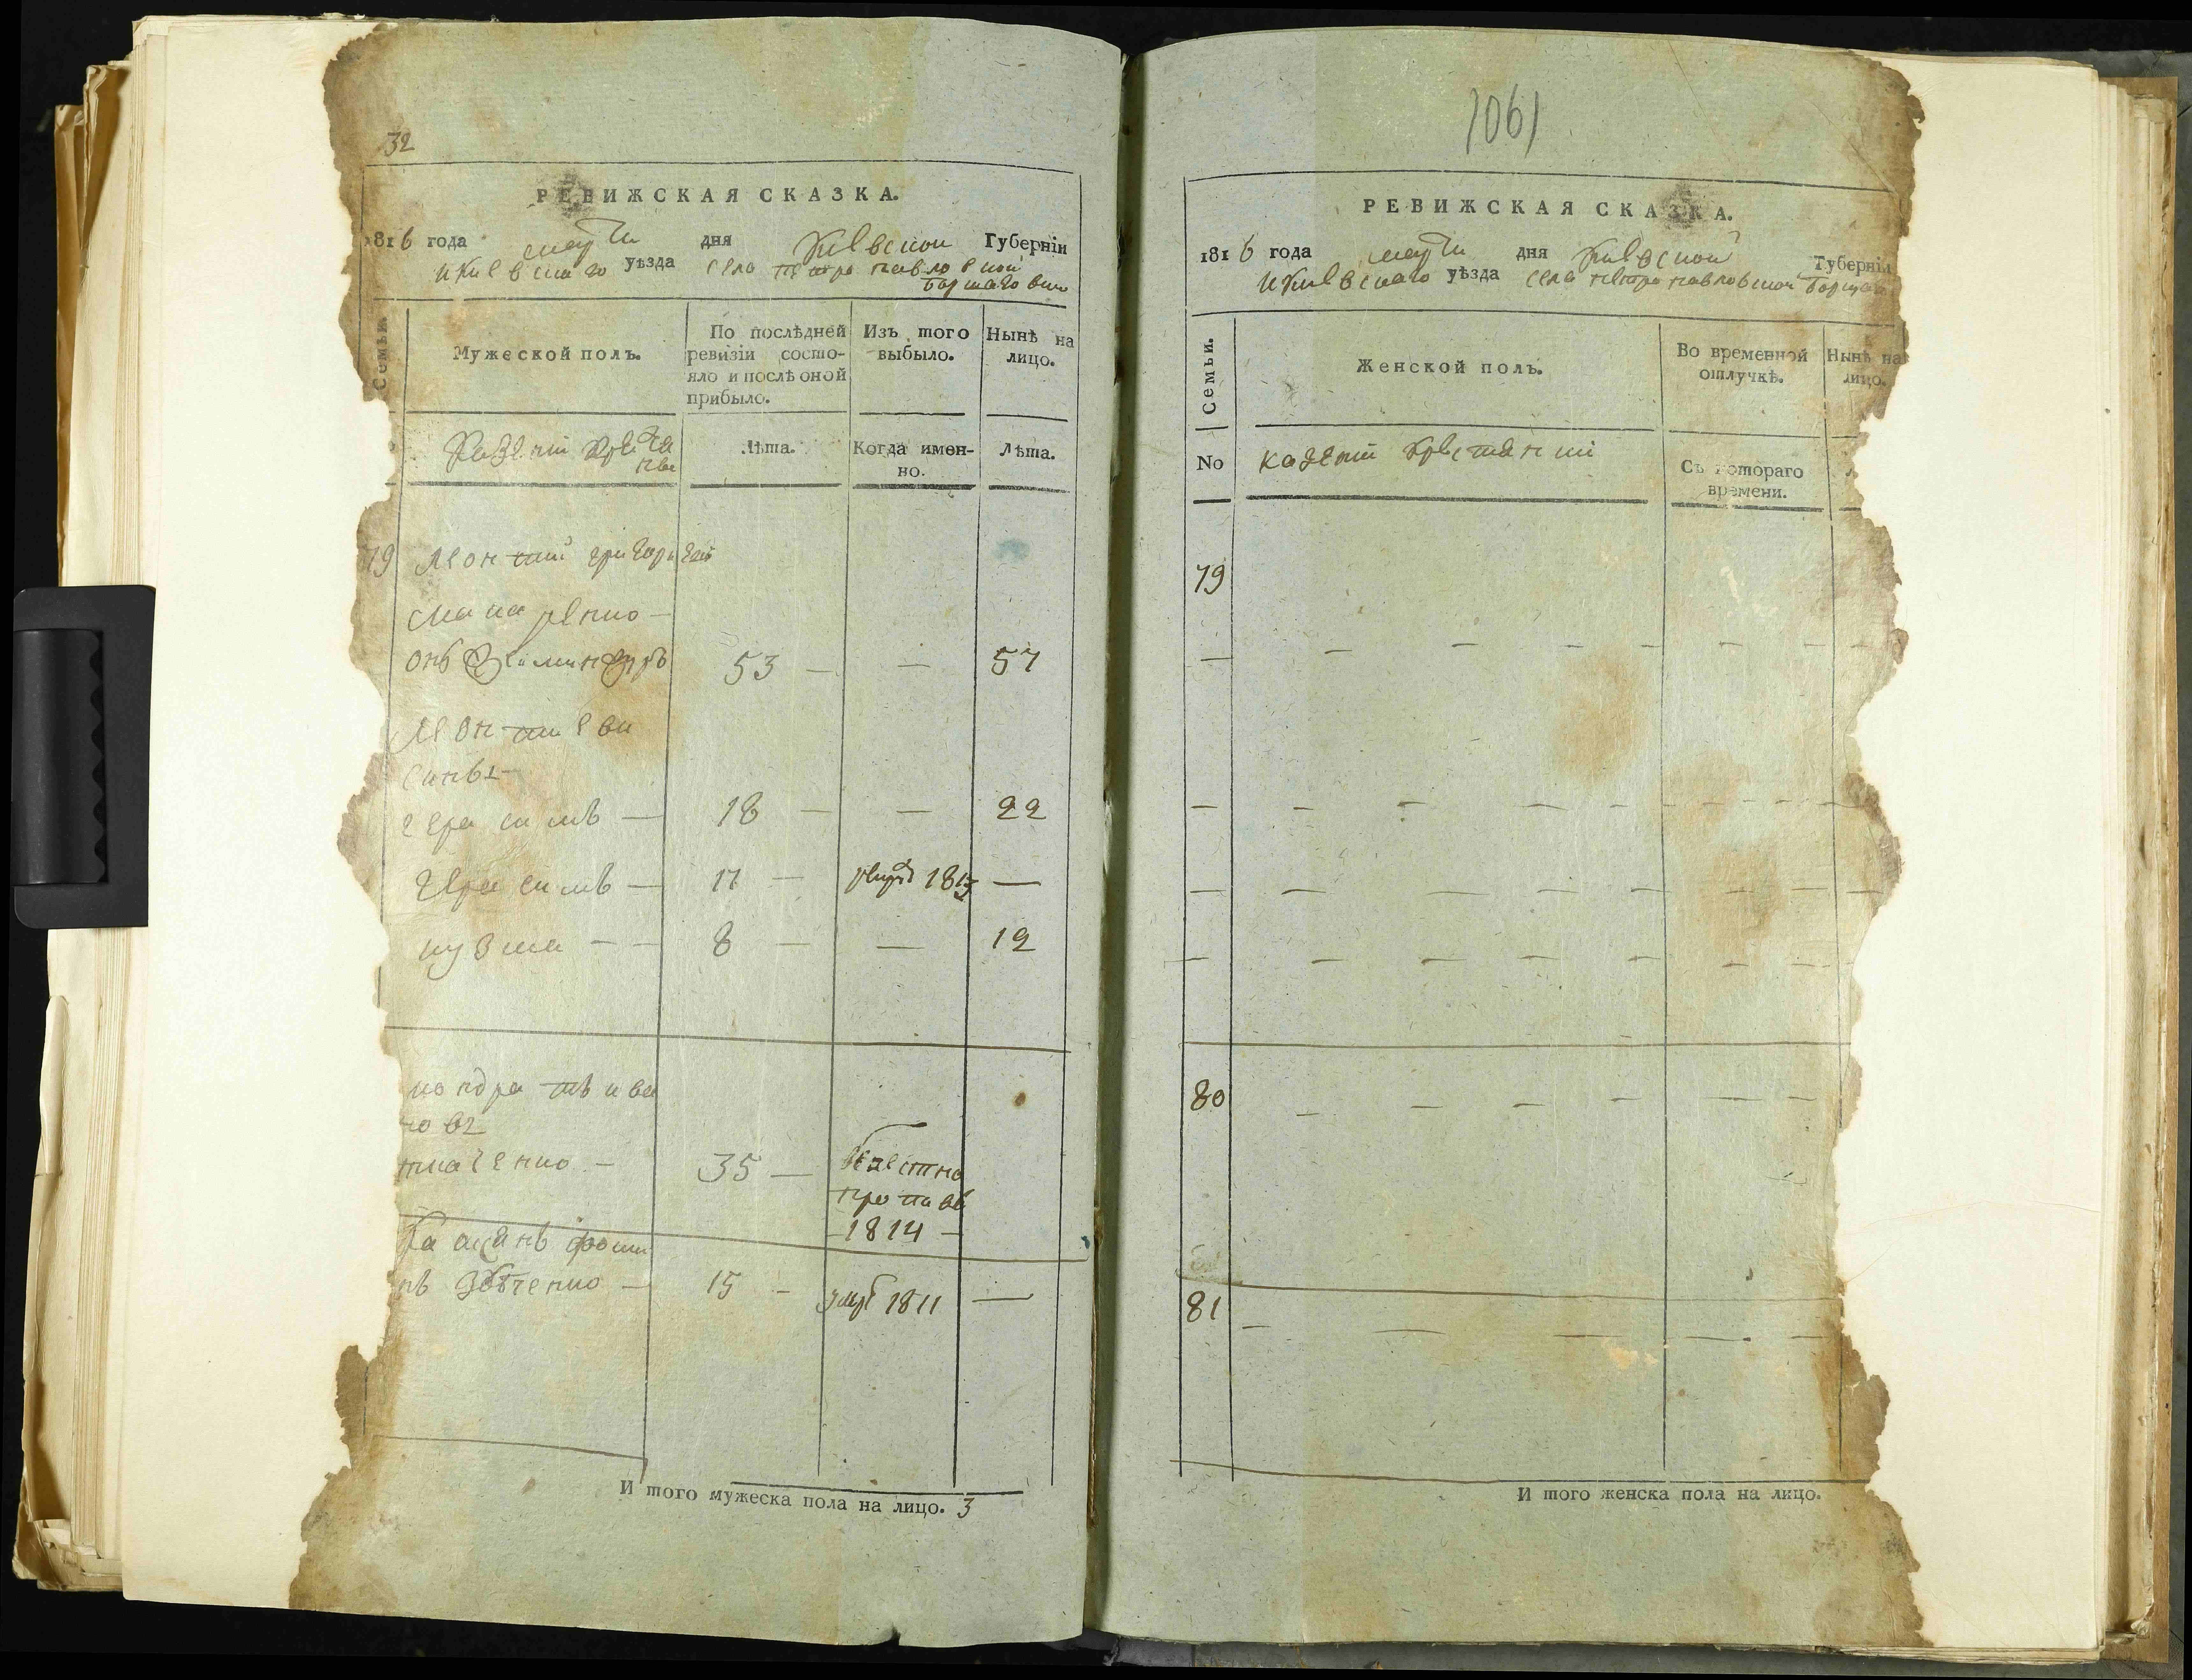 32
РЕВИЖСКАЯ СКАЗКА.
1816 года марта дня Киевской Губерніи
и Киевскаго уѣзда села Петропавловской
Борщаговки
Семьи.
Мужеской полъ.
По послѣдней ревизіи состояло и послѣ оной прибыло.
Изъ того выбыло.
Нынѣ на лицо.
Казеніи
Лѣта.
Когда именно.
Лѣта.
79 Леонтий Григориев
Макаренко —
онъ 53 — — 57
Леонтиеви
сины
Герасимъ — 18 — — 22
Герасимъ — 11 — 1813 —
кузма — — 8 — — 12
кондратъ ива
новъ
ткаченко — 35 — безвестно
1814 —
15 — умре 1811 —
И того мужеска пола на лицо. 3
1061
РЕВИЖСКАЯ СКАЗКА.
1816 года марта дня Киевской Губерніи
и Киевскаго уѣзда села Петропавловской Борщаго
Семьи.
Женской полъ.
Во временной отлучкѣ.
Нынѣ на лицо.
No
казеніи
Съ котораго времени.
79
80
81
И того женска пола на лицо.